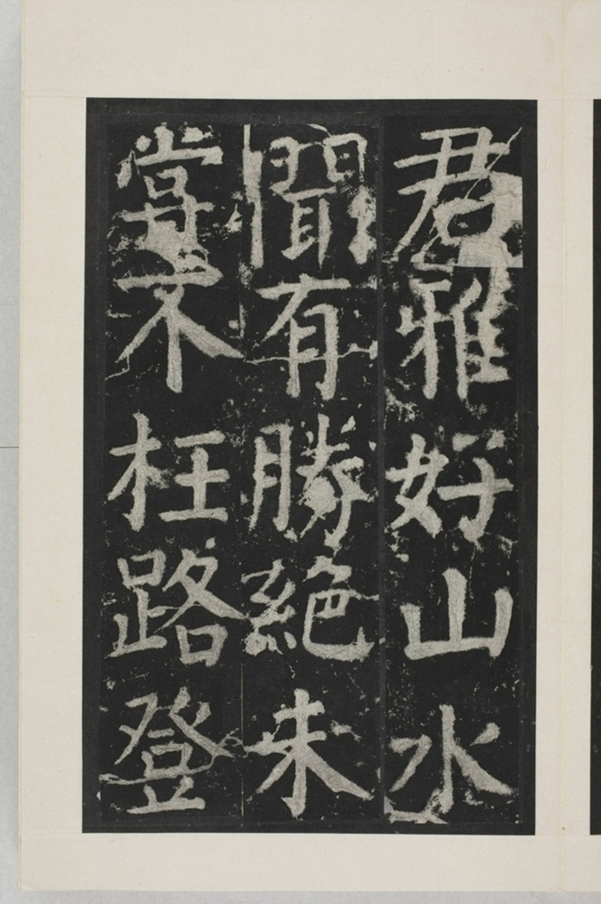 君雅好山水
聞有勝絕未
甞不枉路登